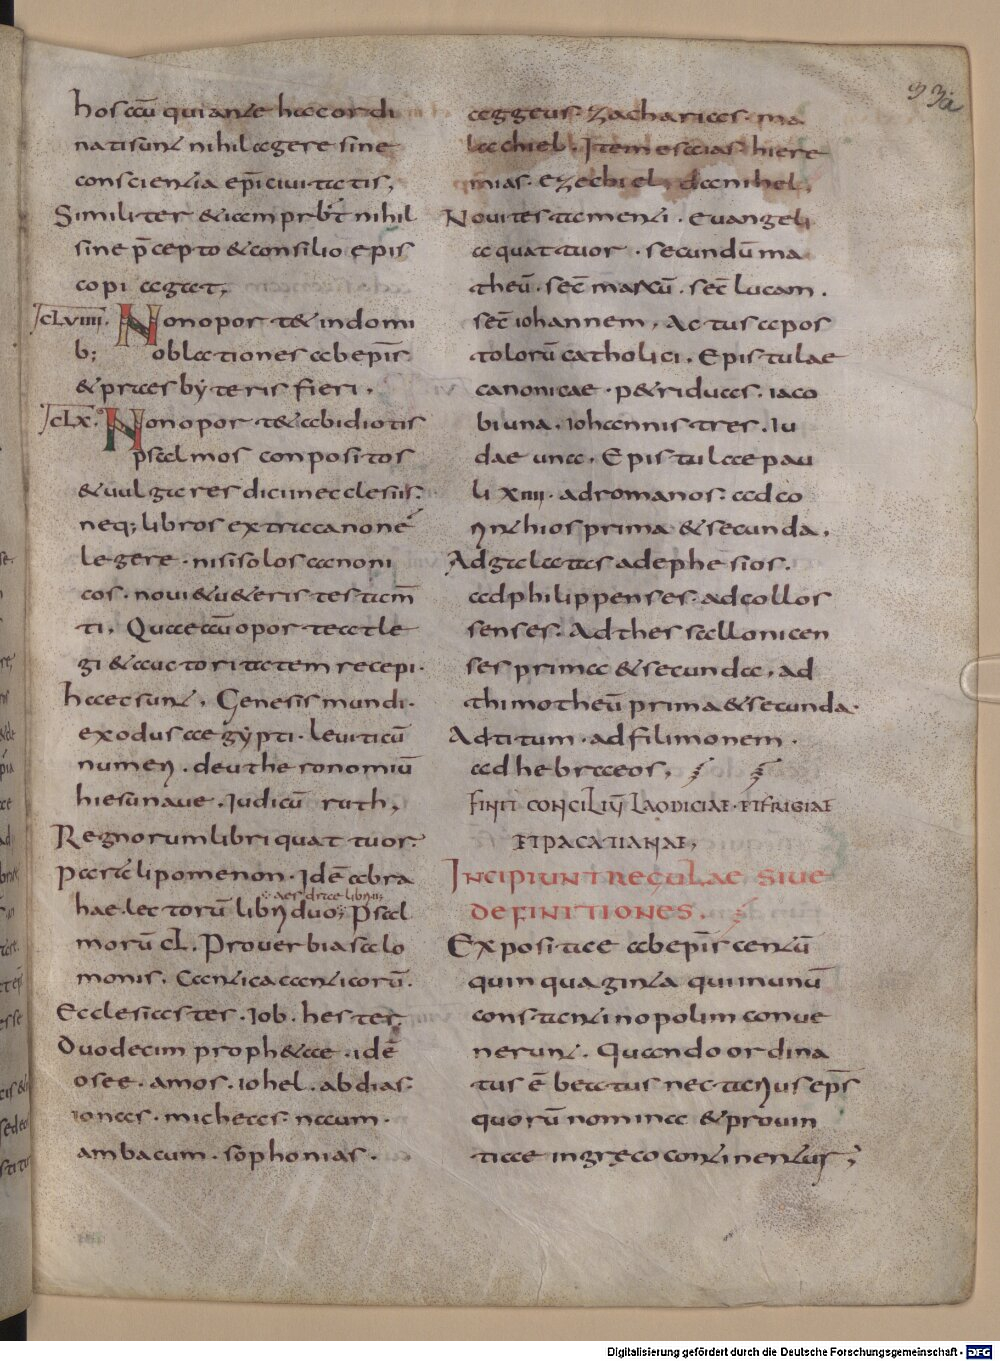 33a
hos autē qui ante haec ordi
nati sunt nihil agere sine
conscientia ep̄i civitatis,
Similiter & iam prb̄t nihil
sine p̄cepto & consilio epis
copi agat,
CLVIIII. Non opor t& in domi
b; oblationes ab ep̄is
& praesbyteris fieri.
CLX. Non opor t& ab idiotis
psalmos conpositos
& vulgares dici in ecclesiis.
neq; libros extra canonē
legere . nisi solos canoni
cos . novi & u&eris testam̄
ti. Quae autē oportect le
gi & auctoritatem recepi.
haec sunt. Genesis mundi.
exodus aegypti . leviticū
numeri . deutheronomiū
hiesu nave . Judicū ruth,
Regnorum libri quattuor.
Paralipomenon . Idē abra
aesdrae libri ii;
hae . lectorū libri duo; Psal
morū CL. Proverbia salo
monis. Cantica canticorū.
Ecclesiaster . Iob . hester.
Duodecim proph&ae . idē
osee . amos . iohel . abdias.
ionas . micheas . naum.
ambacum . sophonias .
aggeus . Zacharias . ma
lachiel . Item esaias . hiere
mias . ezechiel, danihel,
Novi testamenti . evangeli
a quattuor . secundū ma
theū . sec̄ marcū . sec̄ lucam .
sec̄ iohannem, Actus apos
tolorū catholici. Epistulae
canonicae . p&ri duas . iaco
bi una . iohannis tres . Iu
dae una. Epistulae pau
li xiiii . ad romanos . ad co
rinthios prima & secunda,
Ad galatas ad ephesios.
ad philippenses . ad collos
senses. Ad thessallonicen
ses prima & secunda, ad
thimotheū prima & secunda.
Ad titum . ad filimonem .
ad hebraeos,
FINIT CONCILIŪ LAODICIAE . ET FRIGIAE
ET PACATIANAE,
INCIPIUNT REGULAE SIVE
DEFINITIONES.
Expositae ab ep̄is centū
quinquaginta qui in unū
constantinopolim conve
nerunt. Quando ordina
tus ē beatus nectarius ep̄s
quorū nomina & provin
tiae in greco continentur;
Digitalisierung gefördert durch die Deutsche Forschungsgemeinschaft - DFG